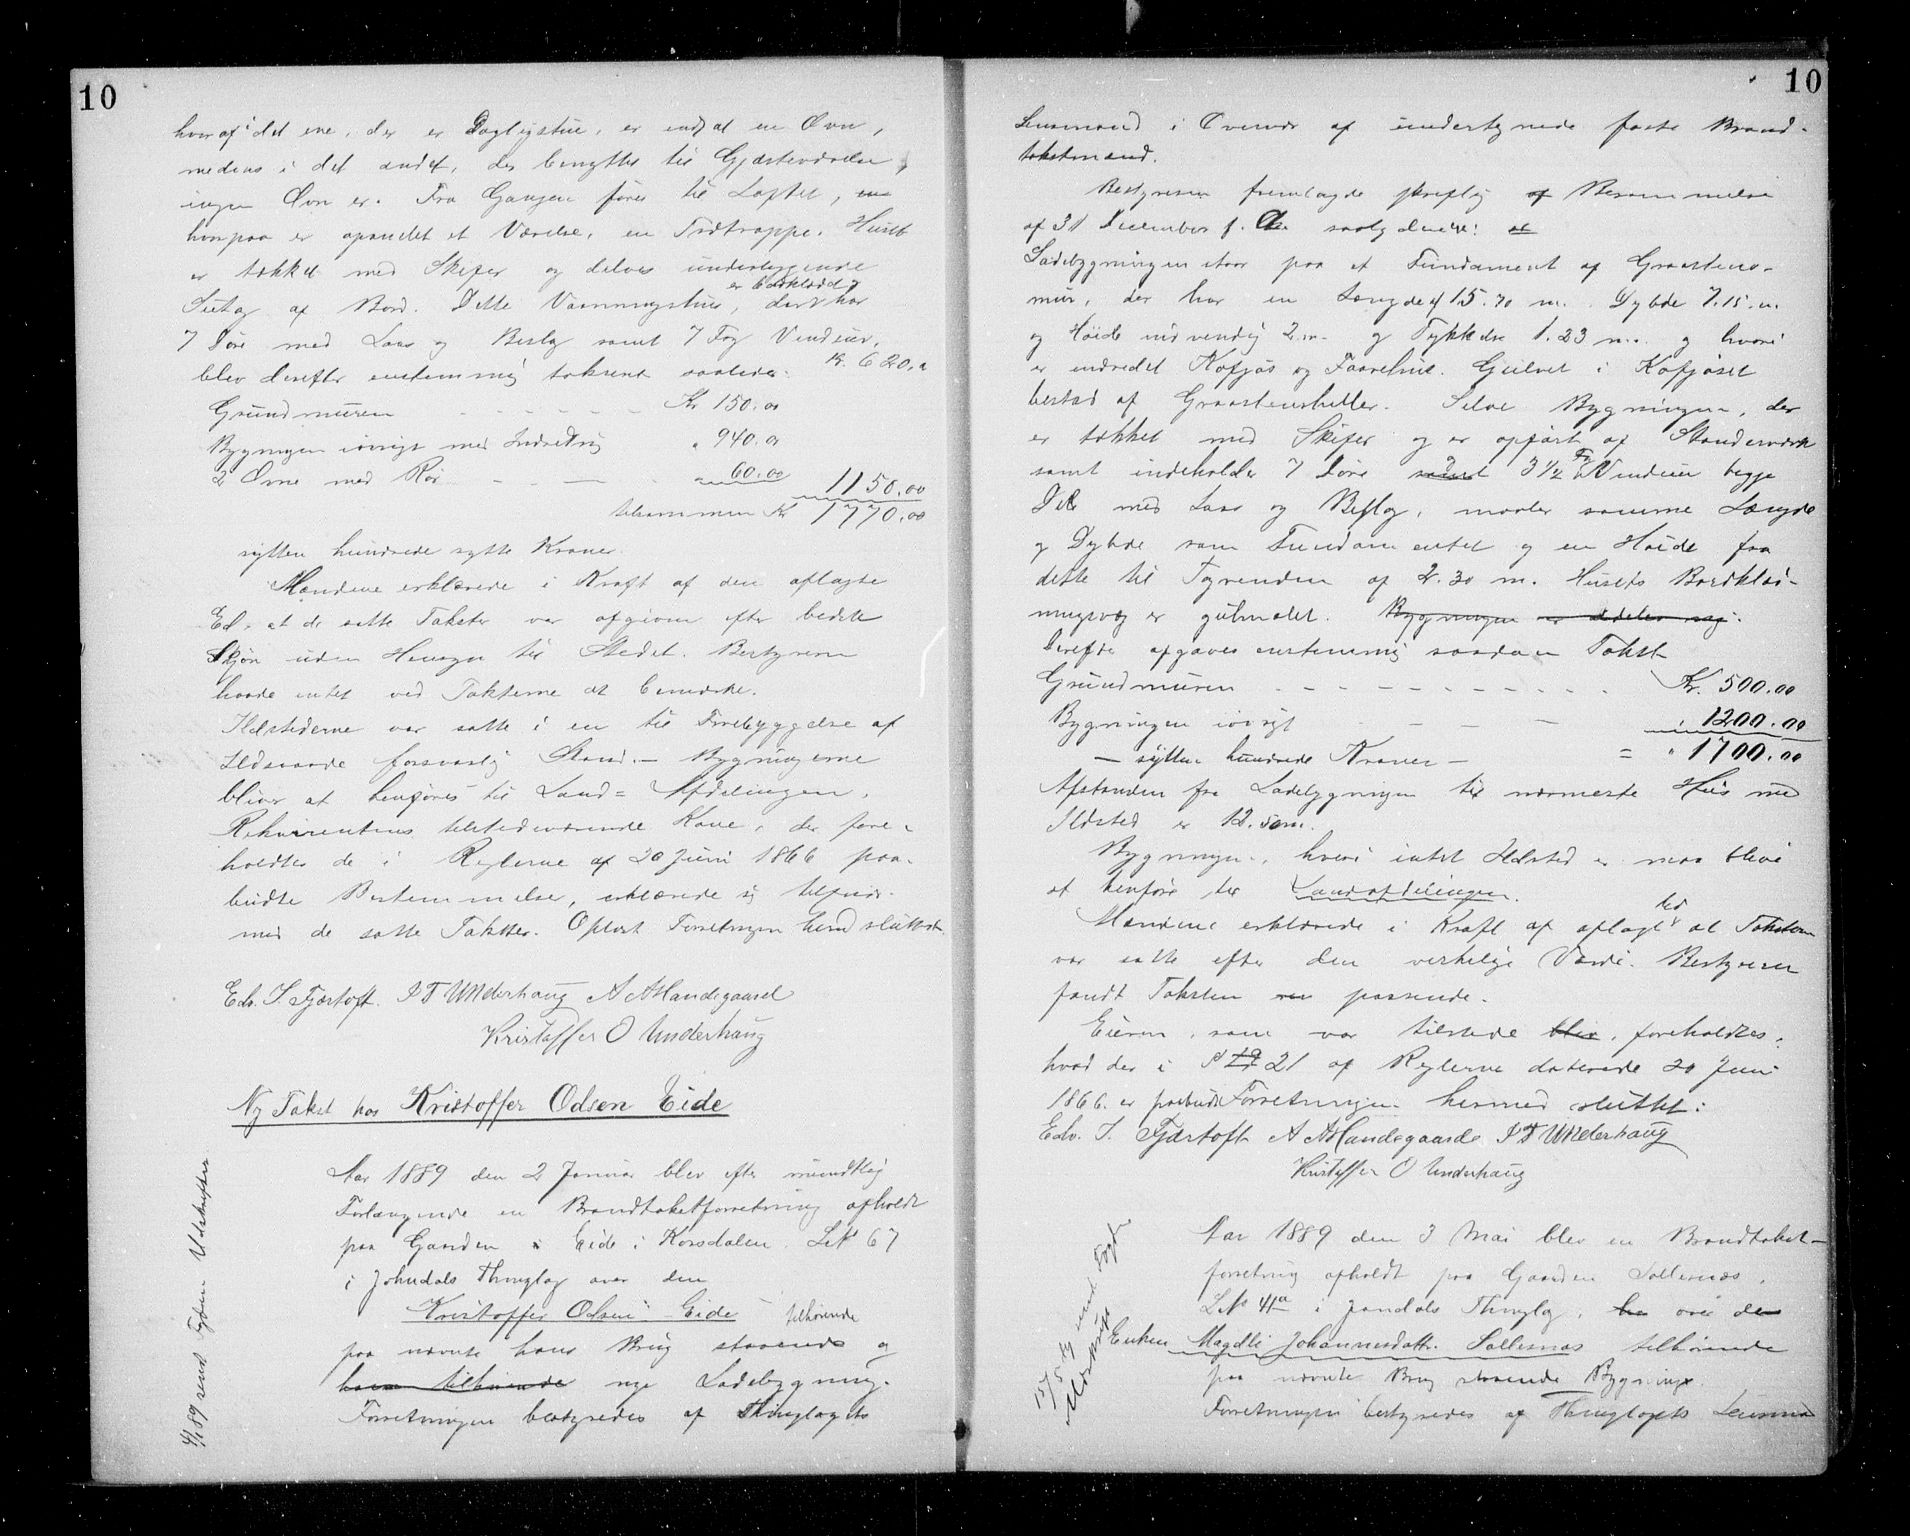 10
hvoraf i det ene, der er Dagligstue, er indsat en Ovn,
medens i det andet, der benyttes til Gjæsteværelse,
ingen Ovn er. Fra Gangen fører til Loftet, en
hvorpaa er opandet et Værelse, en Trætrappe. Huset
er tækket med Skifer og delvis underliggende
er bordklædt
Sutag af Bord. Dette Vaaningshus, der har
7 Døre med Laas og Beslag samt 7 Fag Vinduer,
blev derefter enstemmig takseret saaledes: Kr. 620,00
Grundmuren - - - - - - Kr 150.00
Bygningen iøvrigt med Indredning " 940.00
2 Ovne med Rør - - - - " 60.00 1150.00
tilsammen Kr 1770.00
sytten hundrede sytti Kroner.
Mændene erklærede i Kraft af den aflagte
Ed, at de satte Takster var afgivne efter bedste
Skjøn uden Hensyn til Stedet. Bestyreren
havde intet ved Taksterne at bemærke.
Ildstederne var satte i en til Forebyggelse af
Ildsvaade forsvarlig Stand. – Bygningerne
bliver at henføres til Land= Afdelingen.
Rekvirentens tilstedeværende Kone, der fore-
holdtes de i Reglerne af 20 Juni 1866 paa-
budte Bestemmelser, erklærede sig tilfreds
med de satte Takster. Oplæst Forretningen hermed sluttet.
Edv. S. Fjærtoft. P T Underhaug A AHandegaard
Kristoffer O Underhaug
Ny Takst hos Kristoffer Odsen Eide
Aar 1889 den 2 Januar blev efter mundtlig
Forlangende en Brandtakstforretning afholdt
paa Gaarden Eide i Korsdalen L№ 67
i Johndals Thinglag over den
Kristoffer Odsen Eide tilhørende
paa nævnte hans Brug staaende og
ham tilhørende nye Ladebygning.
Forretningen bestyredes af Thinglagets
4/1 89 sendt Fogden Udskrifter
10
Lensmand i Overvær af undertegnede faste Brand-
takstmænd.
Bestyreren fremlagde skriftlig af Berammelse
af 31 December f. A. saalydende:
Ladebygningen staar paa et Fundament af Graastens-
mur, der har en Længde af 15.70 m. Dybde 7.15 m.
og Høide indvendig 2 m. og Tykkelse 1.23 m. og hvori
er indredet Kofjøs og Faarehus. Gulvet i Kofjøset
bestaar af Graastensheller. Selve Bygningen, der
er tækket med Skifer og er opført af Stavderværk
samt indeholder 7 Døre samt og 3 1/2 Fag Vinduer begge
Dele med Laas og Beslag, maaler samme Længde
og Dybde som Fundamentet og en Høide fra
dette til Tagrenden af 2.30 m. Husets Bordklæd-
ningsvæg er gulmalet. Bygningen er
Derefter afgaves enstemmig saadan Takst
Grundmuren - - - - - - - - - - Kr. 500.00
Bygningen iøvrigt - - - - " 1200.00
– sytten hundrede Kroner – = " 1700.00
Afstanden fra Ladebygningen til nærmeste Hus med
Ildsted er 12.50 m.
Bygningen, hvori intet Ildsted er maa blive
at henføre til Landafdelingen.
Mændene erklærede i Kraft af aflagt Ed at Taksten
var satte efter den virkelige Værdi. Bestyreren
fandt Taksten passende.
Eieren, som var tilstede blev, foreholdtes,
hvad der i § 21 af Reglerne daterede 20 Juni
1866 er paabudt. Forretningen hermed sluttet:
Edv. S. Fjærtoft A AHandegaard P T Underhaug
Kristoffer O Underhaug
Aar 1889 den 3 Mai blev en Brandtakst-
forretning afholdt paa Gaarden Sollesnæs,
L№ 41a i Jondals Thinglag, over den
Enken Magdli Johannesdatter Sollesnæs tilhørende
paa nævnte Brug staaende Bygninger.
Forretningen bestyredes af Thinglagets Lensmand
15/5 89 sendt Fogden
Udskrift